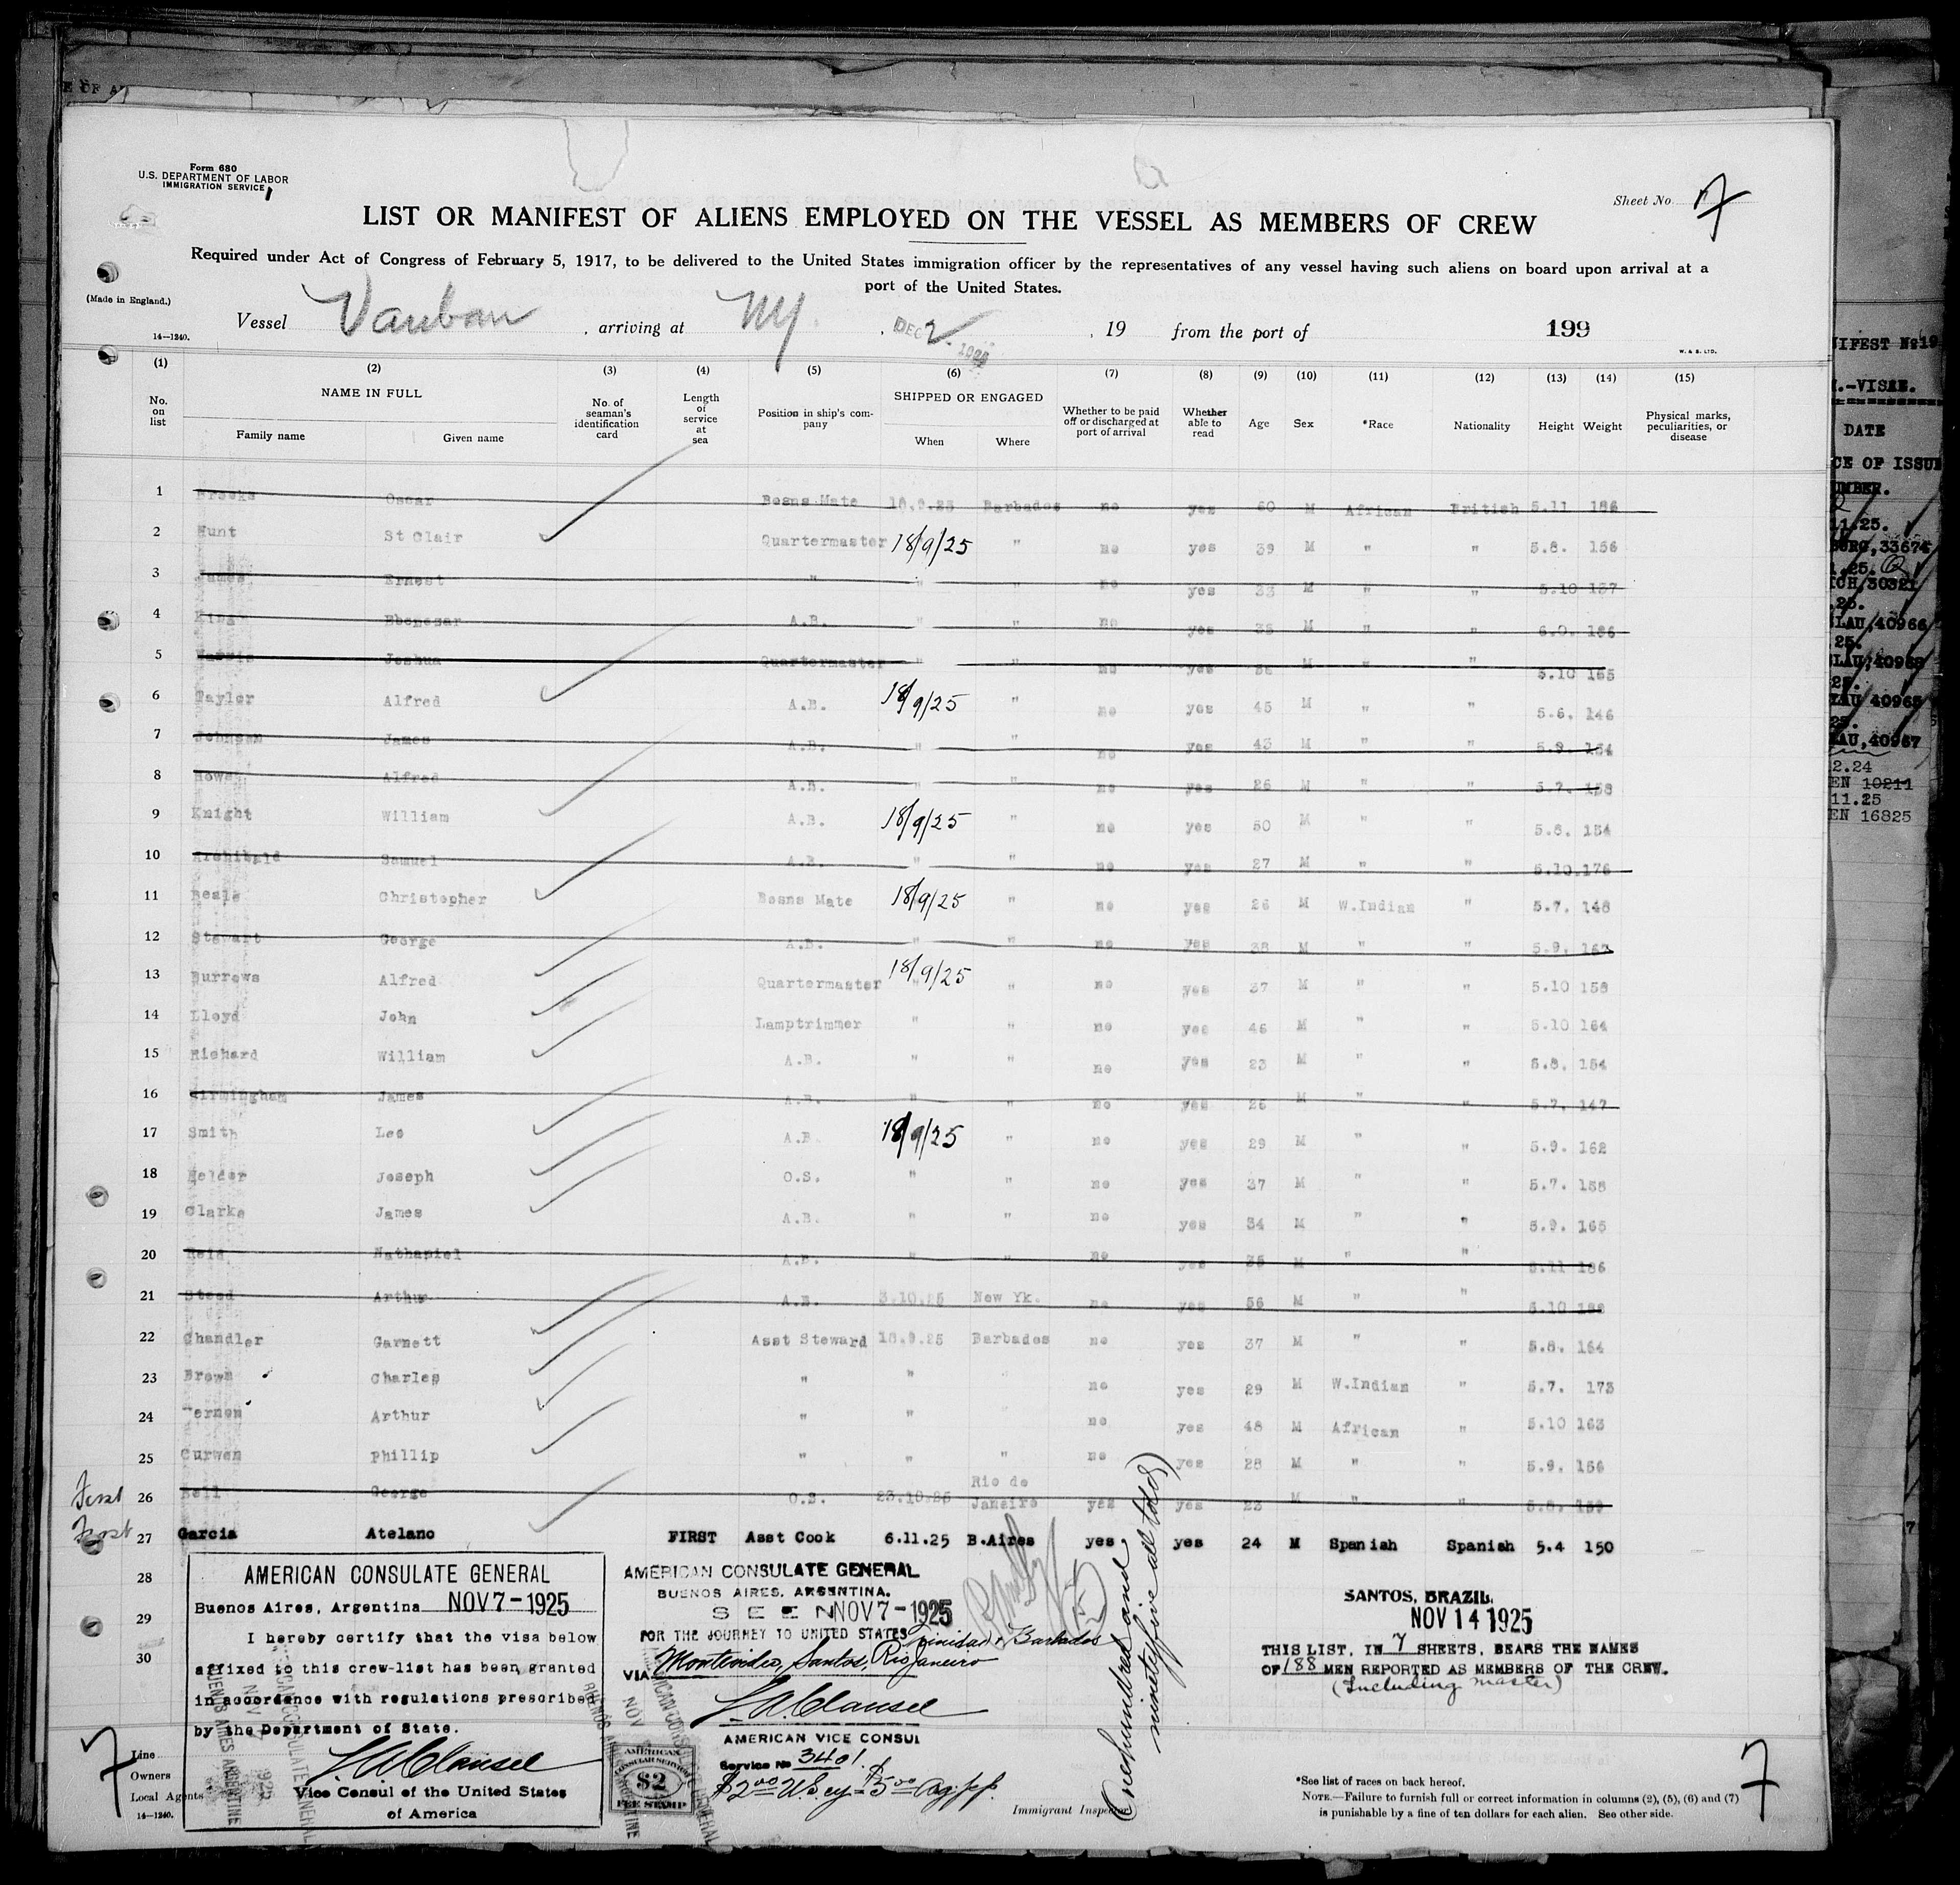 Form 680
U.S. DEPARTMENT OF LABOR
IMMIGRATION SERVICE
Sheet No. 7
LIST OR MANIFEST OF ALIENS EMPLOYED ON THE VESSEL AS MEMBERS OF CREW
Required under Act of Congress of February 5, 1917, to be delivered to the United States immigration officer by the representatives of any vessel having such aliens on board upon arrival at a
port of the United States.
(Made in England.)
Vessel Vauban , arriving at NY , DEC 2 , 19 from the port of 199
14—1240.
W. & S. LTD.
(1) (2) (3) (4) (5) (6) (7) (8) (9) (10) (11) (12) (13) (14) (15)
No. on list NAME IN FULL Family name Given name No. of seaman's identification card Length of service at sea Position in ship's company SHIPPED OR ENGAGED When Where Whether to be paid off or discharged at port of arrival Whether able to read Age Sex *Race Nationality Height Weight Physical marks, peculiarities, or disease
1 Brooks Oscar Bosns Mate 18.9.25 Barbados no yes 50 M African British 5.11 186
2 Hunt St Clair Quartermaster 18/9/25 " no yes 39 M " " 5.8. 156
3 James Ernest " " " no yes 33 M " " 5.10 157
4 King Ebenezar A.B. " " no yes 35 M " " 6.0. 186
5 Harris Joshua Quartermaster " " no yes 36 M " " 5.10 165
6 Taylor Alfred A.B. 18/9/25 " no yes 45 M " " 5.6. 146
7 Johnson James A.B. " " no yes 43 M " " 5.9. 154
8 Howell Alfred A.B. " " no yes 26 M " " 5.7. 158
9 Knight William A.B. 18/9/25 " no yes 50 M " " 5.8. 154
10 Archibald Samuel A.B. " " no yes 27 M " " 5.10. 176
11 Beale Christopher Bosns Mate 18/9/25 " no yes 26 M W.Indian " 5.7. 148
12 Stewart George A.B. " " no yes 38 M " " 5.9. 167
13 Burrows Alfred Quartermaster 18/9/25 " no yes 37 M " " 5.10 158
14 Lloyd John Lamptrimmer " " no yes 46 M " " 5.10 164
15 Richard William A.B. " " no yes 23 M " " 5.8. 154
16 Birmingham James A.B. " " no yes 26 M " " 5.7. 147
17 Smith Leo A.B. 18/9/25 " no yes 29 M " " 5.9. 162
18 Helder Joseph O.S. " " no yes 37 M " " 5.7. 158
19 Clarke James A.B. " " no yes 34 M " " 5.9. 165
20 Reid Nathaniel A.B. " " no yes 35 M " " 5.11 186
21 Steed Arthur A.B. 3.10.25 New Yk. no yes 56 M " " 5.10
22 Chandler Garnett Asst Steward 18.9.25 Barbados no yes 37 M " " 5.8. 164
23 Brown Charles " " no yes 29 M W.Indian " 5.7. 173
24 Vernon Arthur " " no yes 48 M African " 5.10 163
25 Curwen Phillip " " " no yes 28 M " " 5.9. 156
First 26 Bell George O.S. 23.10.25 Rio de Janeiro yes yes 23 M " " 5.8. 159
First 27 Garcia Atelano FIRST Asst Cook 6.11.25 B.Aires yes yes 24 M Spanish Spanish 5.4 150
28
29
30
AMERICAN CONSULATE GENERAL
Buenos Aires, Argentina NOV 7 - 1925
I hereby certify that the visa below
affixed to this crew-list has been granted
in accordance with regulations prescribed
by the Department of State.
Vice Consul of the United States
of America
AMERICAN CONSULATE GENERAL
BUENOS AIRES, ARGENTINA.
SEEN NOV 7 - 1925
FOR THE JOURNEY TO UNITED STATES Trinidad, Barbados
VIA Montevideo, Santos, Rio Janeiro
AMERICAN VICE CONSUL
Service No 3401
$2.00 US cy $5.00 Arg. pp.
AMERICAN
CONSULAR SERVICE
$2
FEE STAMP
One hundred and
ninety five all told)
SANTOS, BRAZIL.
NOV 14 1925
THIS LIST, IN 7 SHEETS, BEARS THE NAMES
OF 188 MEN REPORTED AS MEMBERS OF THE CREW.
(Including master)
7
Line
Owners
Local Agents
14—1240.
Immigrant Inspector
*See list of races on back hereof.
NOTE.—Failure to furnish full or correct information in columns (2), (5), (6) and (7)
is punishable by a fine of ten dollars for each alien. See other side.
7
MANIFEST No 19
DATE
33674
30321
40966
40968
40965
40967
2.24
EN 10211
11.25
EN 16825